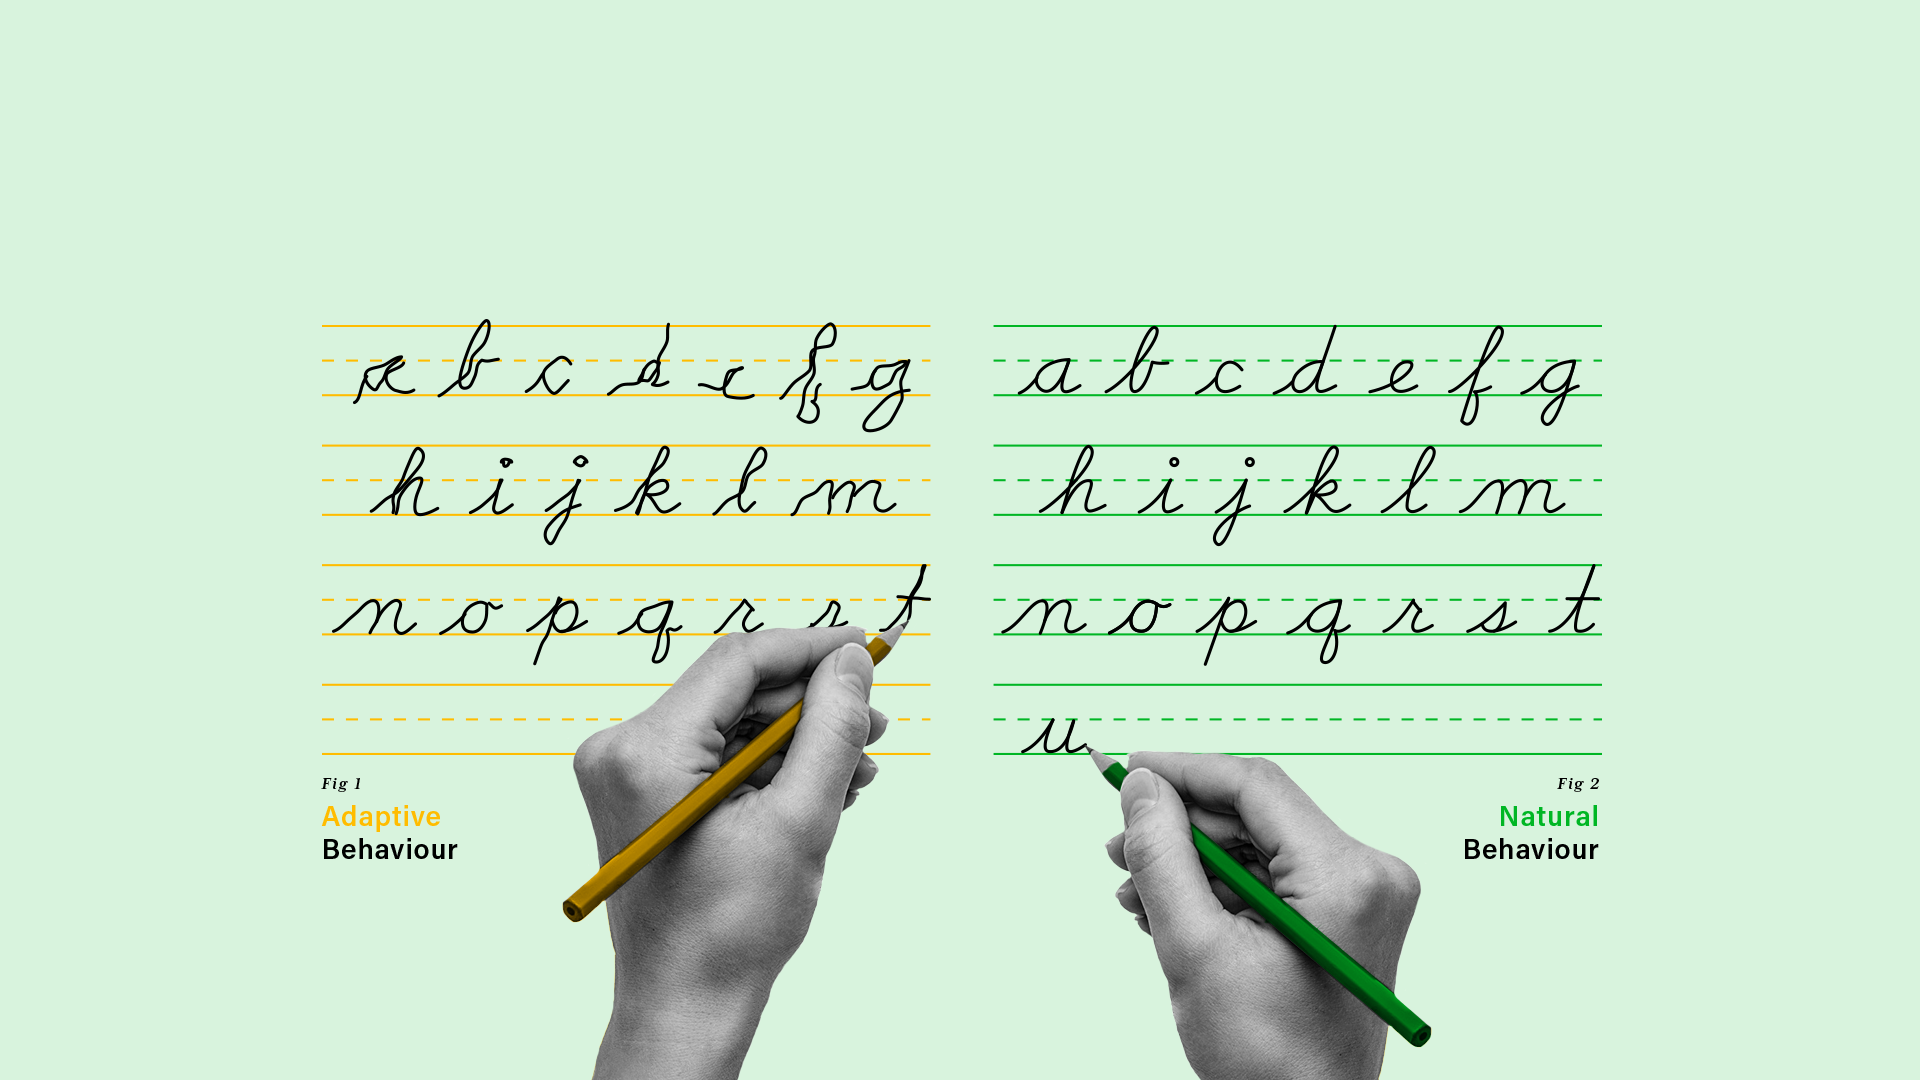 a b c d e f g
h i j k l m
n o p q r s t
Fig 1
Adaptive
Behaviour
a b c d e f g
h i j k l m
n o p q r s t
u
Fig 2
Natural
Behaviour